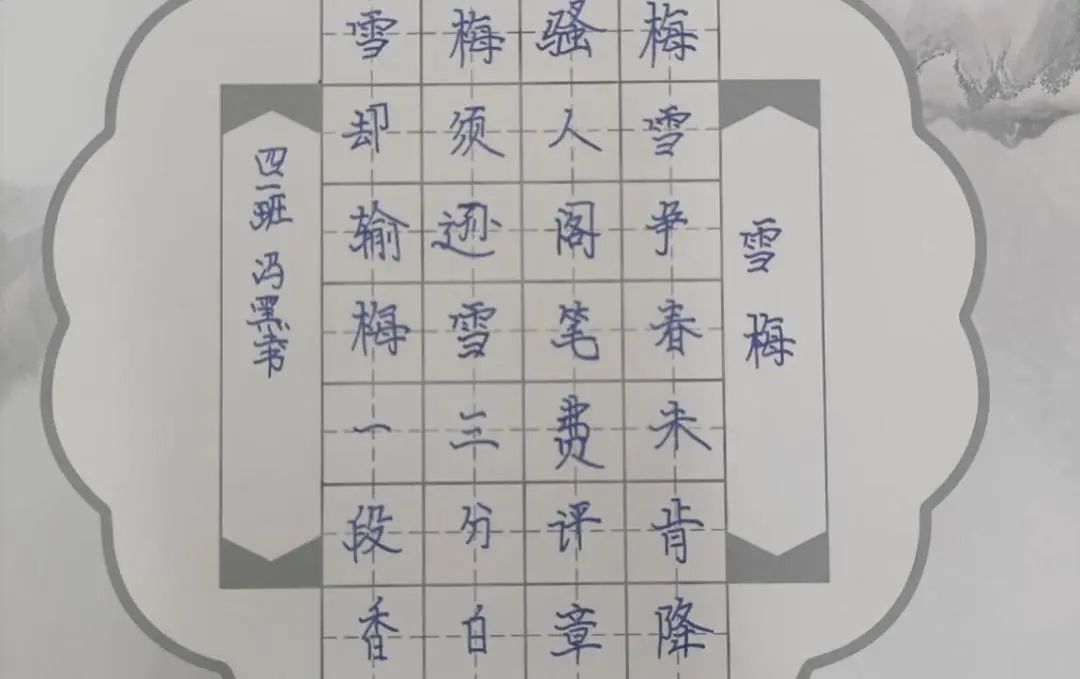 雪梅
梅雪争春未肯降
骚人阁笔费评章
梅须逊雪三分白
雪却输梅一段香
四一班 冯黑